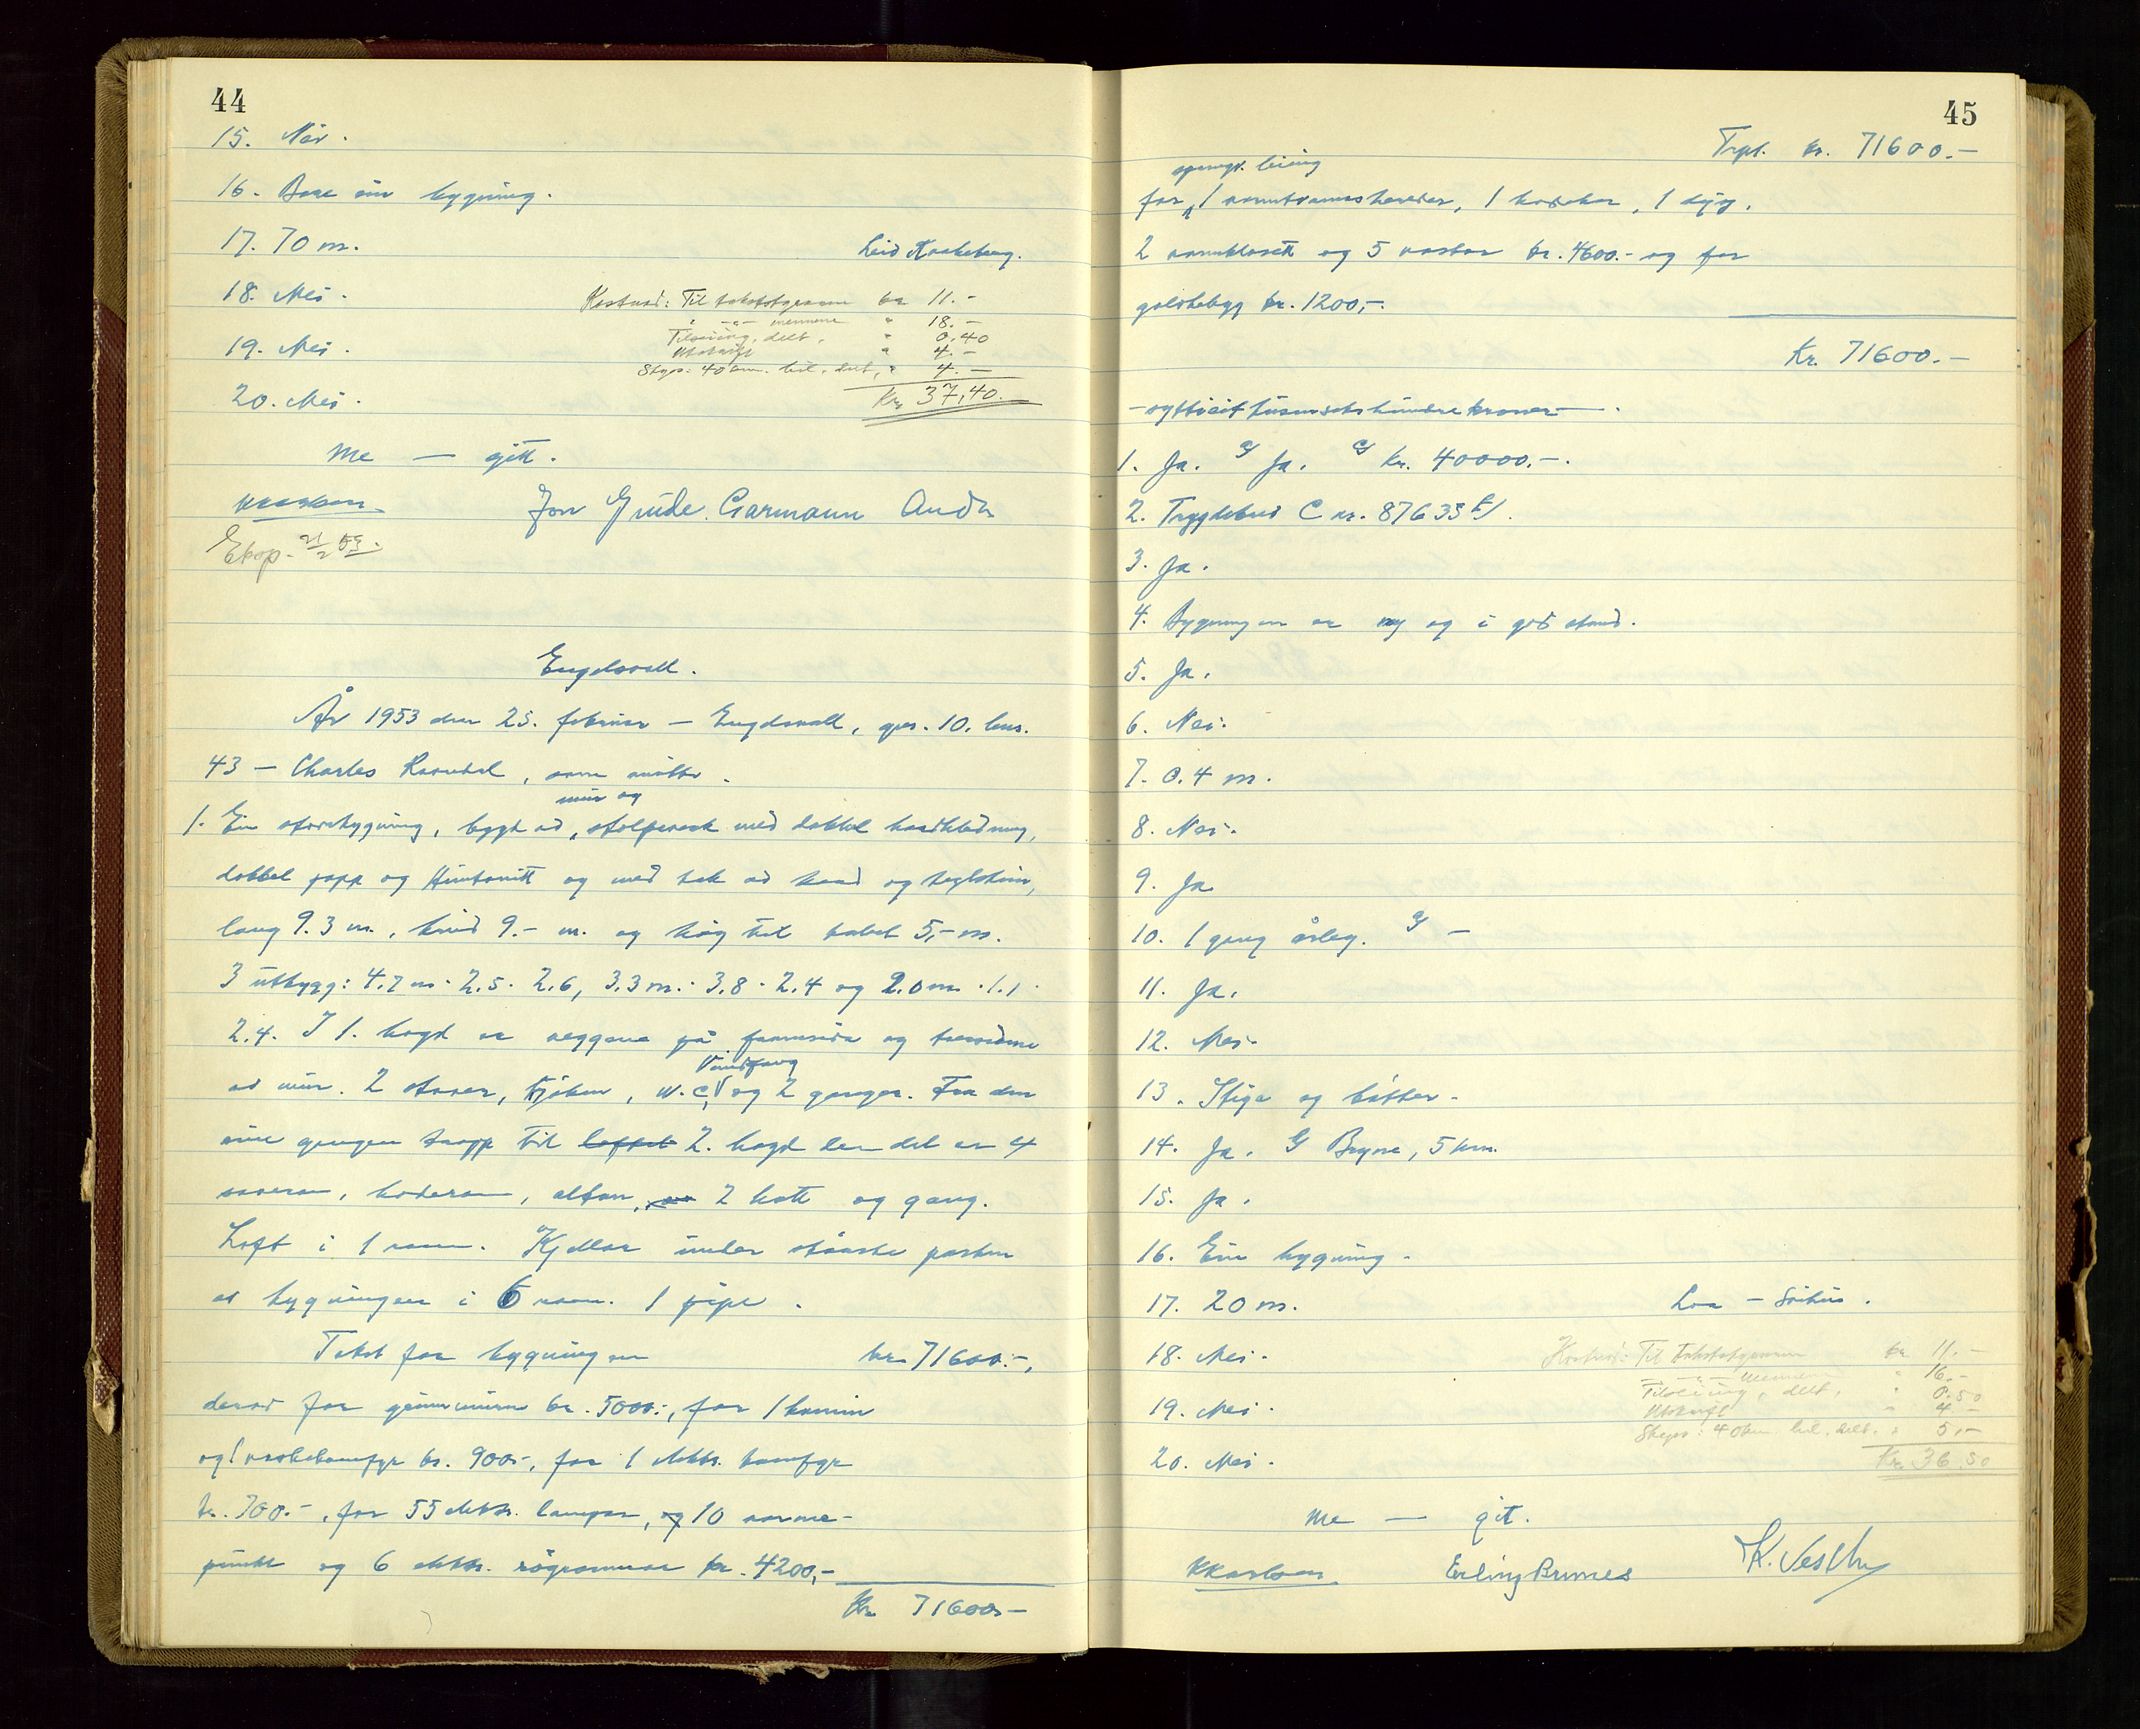 44
15. Nei.
16. Bare ein bygning.
17. 70 m.
18. Nei.
Kostnad: Til takststyraren kr 11.-
" -"- mennene " 18.-
Tilseiing, delt, " 0,40
Utskrift " 4.-
Skyss: 40 km. bil, delt, " 4.-
Kr. 37,40.
19. Nei.
20. Nei.
Me — gitt.
KKarlsen Jon Grude. Garmann
Ekop. 21/2 53.
Engelsvoll.
År 1953 den 25. februar — Engelsvoll, gnr. 10. bnr.
43 — Charles, som møtte.
mur og
1. Ein storebygning, bygd av stolpeverk med dobbel bordkledning,
dobbel papp og Huntonitt og med tak av bord og teglstein,
lang 9.3 m., breid 9.- m. og høg til taket 5,- m.
3 utbygg: 4.7 m. 2.5. 2.6, 3.3 m. 3.8. 2.4 og 2.0 m. 1.1.
2.4. I 1. høgd er veggene på framsida og tversidene
Vindfang
av mur. 2 stover, kjøken, W.C, og 2 ganger. Frå den
eine gangen trapp til loftet 2. høgd der det er 4
soverom, baderom, altan, 2 kott og gang.
Loft i 1 rom. Kjellar under største parten
av bygningen i 6 rom. 1 pipe.
Takst for bygningen kr. 71600.-,
derav for grunnmuren kr. 5000.-, for 1 kamin
og 1 vaskekomfyr kr. 900.-, for 1 elektr. komfyr
kr. 700.-, for 55 elektr. lamper, og 10 varme-
punkt og 6 elektr. kr. 4200,-
Kr 71600.-
45
Trpt. kr. 71600.-
leiing
for 1 varmtvannsbereder, 1 badekar, 1 dusj,
2 vannklosett og 5 vaskar kr. 4600.- og for
kr. 1200,-.
Kr. 71600.-
- syttieittusensekshundrekroner -.
1. Ja. a/ Ja. c/ kr. 40000.-.
2. Trygdebrev C nr. 87635 E/.
3. Ja.
4. Bygningen er ny og i god stand.
5. Ja.
6. Nei.
7. 0.4 m.
8. Nei.
9. Ja
10. 1 gang årleg. a/ -
11. Ja.
12. Nei.
13. Stige og bøtter.
14. Ja. G Bryne, 5 km.
15. Ja.
16. Ein bygning.
17. 20 m.
18. Nei.
Kostnad: Til takststyraren kr 11.-
- " - mennene " 16.-
Tilseiing, delt, " 0.50
Utskrift " 4.-
Skyss: 40 km bil, delt. " 5,-
Kr. 36.50
19. Nei.
20. Nei.
Me — gitt.
KKarlsen Erling Brunes